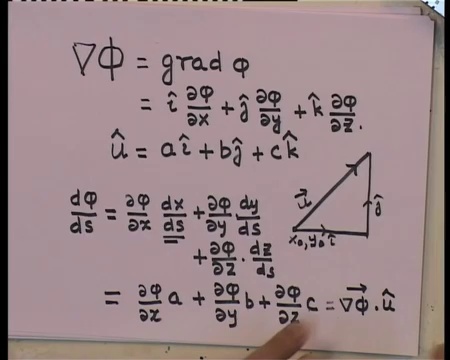 ∇ϕ = grad φ
= î ∂φ/∂x + ĵ ∂φ/∂y + k̂ ∂φ/∂z.
û = aî + bĵ + ck̂
dφ/ds = ∂φ/∂x dx/ds + ∂φ/∂y dy/ds
+ ∂φ/∂z · dz/ds
u⃗
ĵ
x₀,y₀ î
= ∂φ/∂x a + ∂φ/∂y b + ∂φ/∂z c = ∇ϕ⃗ · û